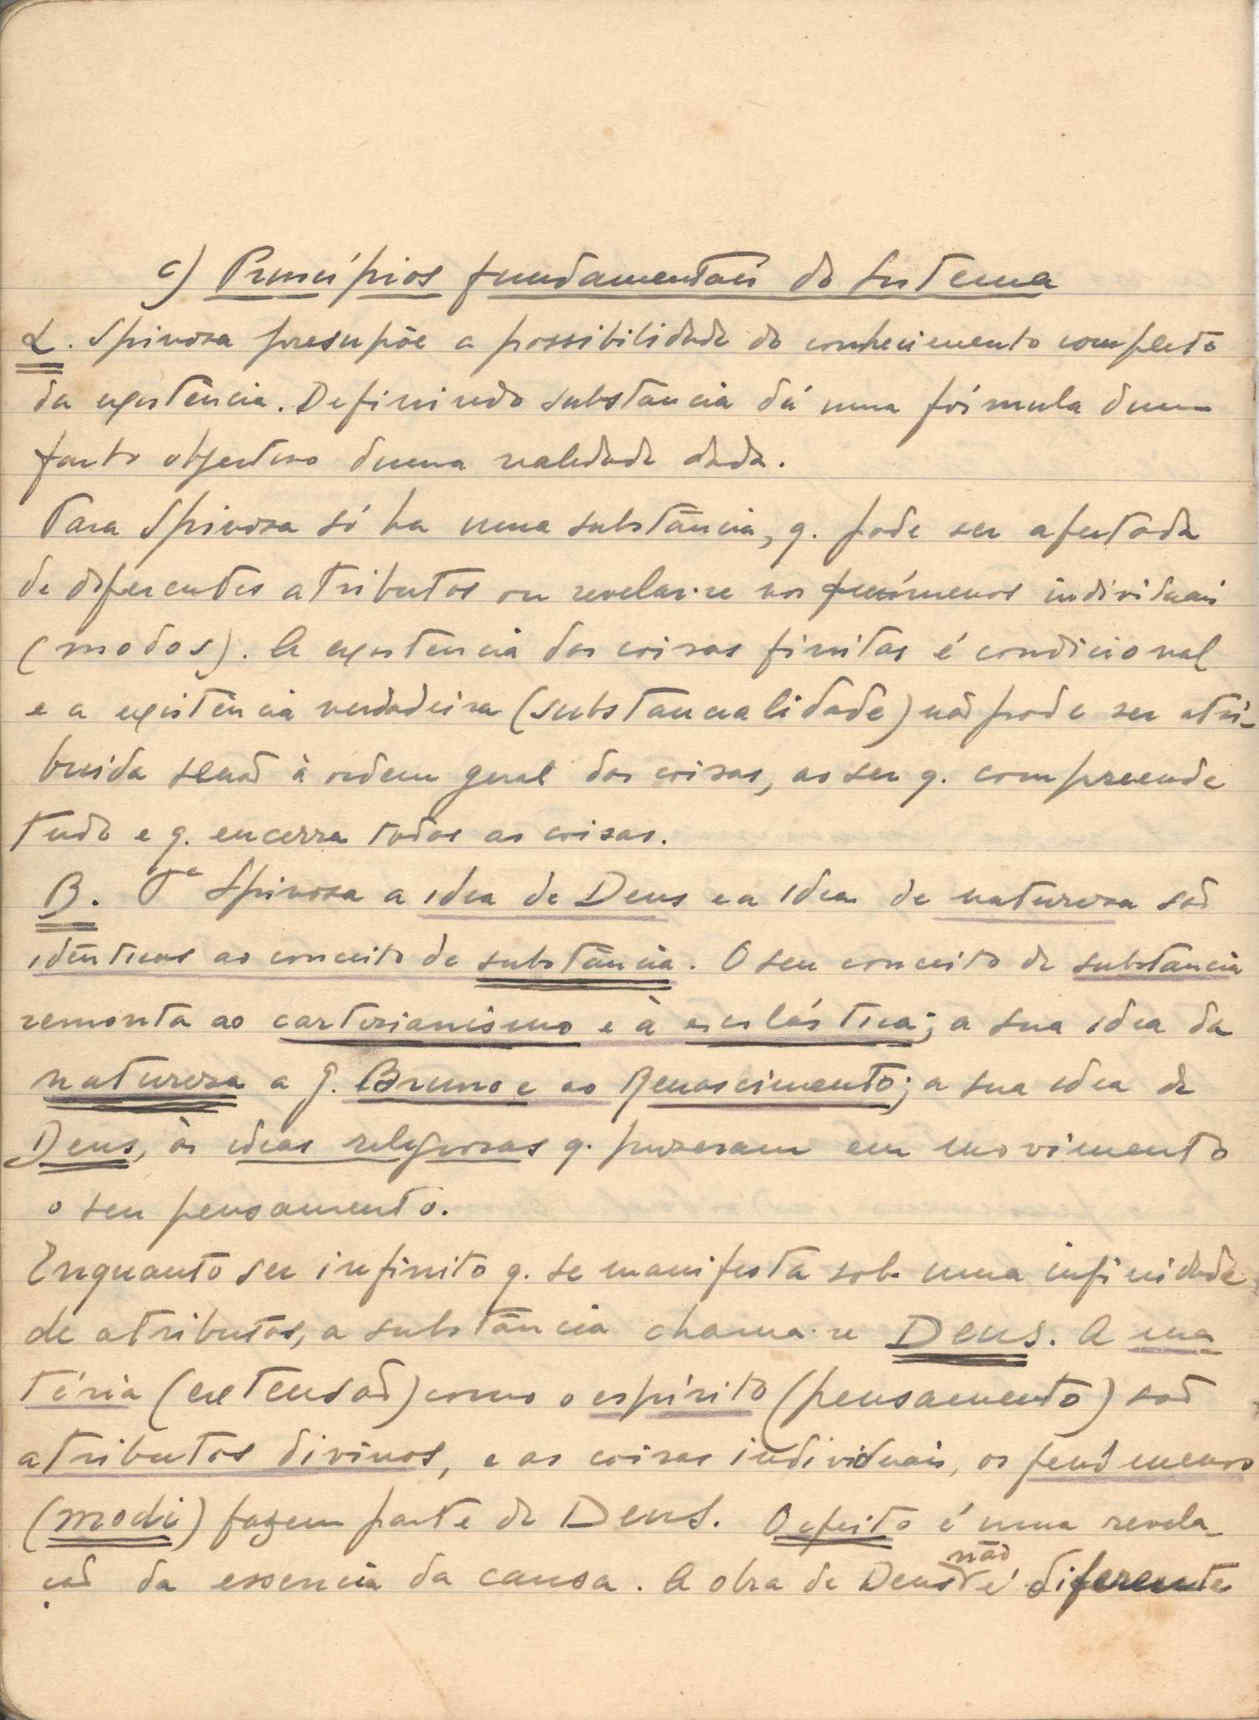 c) Princípios fundamentais do sistema
α. Spinosa presupõe a possibilidade do conhecimento completo
da existência. Definindo substância dá uma fórmula dum
facto objectivo duma realidade dada.
Para Spinosa só ha uma substância, q. pode ser afectada
de diferentes atributos ou revelar-se nos fenómenos individuais
(modos). A existencia das coisas finitas é condicional
e a existência verdadeira (substancialidade) não pode ser atri-
buida senão à ordem geral das coisas, ao ser q. compreende
tudo e q. encerra todas as coisas.
B. Pª Spinosa a idea de Deus e a idea de natureza são
idênticas ao conceito de substância. O seu conceito de substância
remonta ao cartesianismo e à escolástica; a sua idea da
natureza a J. Bruno e ao Renascimento; a sua idea de
Deus, às ideas religiosas q. puzeram em movimento
o seu pensamento.
Enquanto ser infinito q. se manifesta sob uma infinidade
de atributos, a substância chama-se Deus. A ma-
téria (extensão) como o espírito (pensamento) são
atributos divinos, e as coisas individuais, os fenómenos
(modi) fazem parte de Deus. O efeito é uma revela-
ção da essencia da causa. A obra de Deus não é diferente